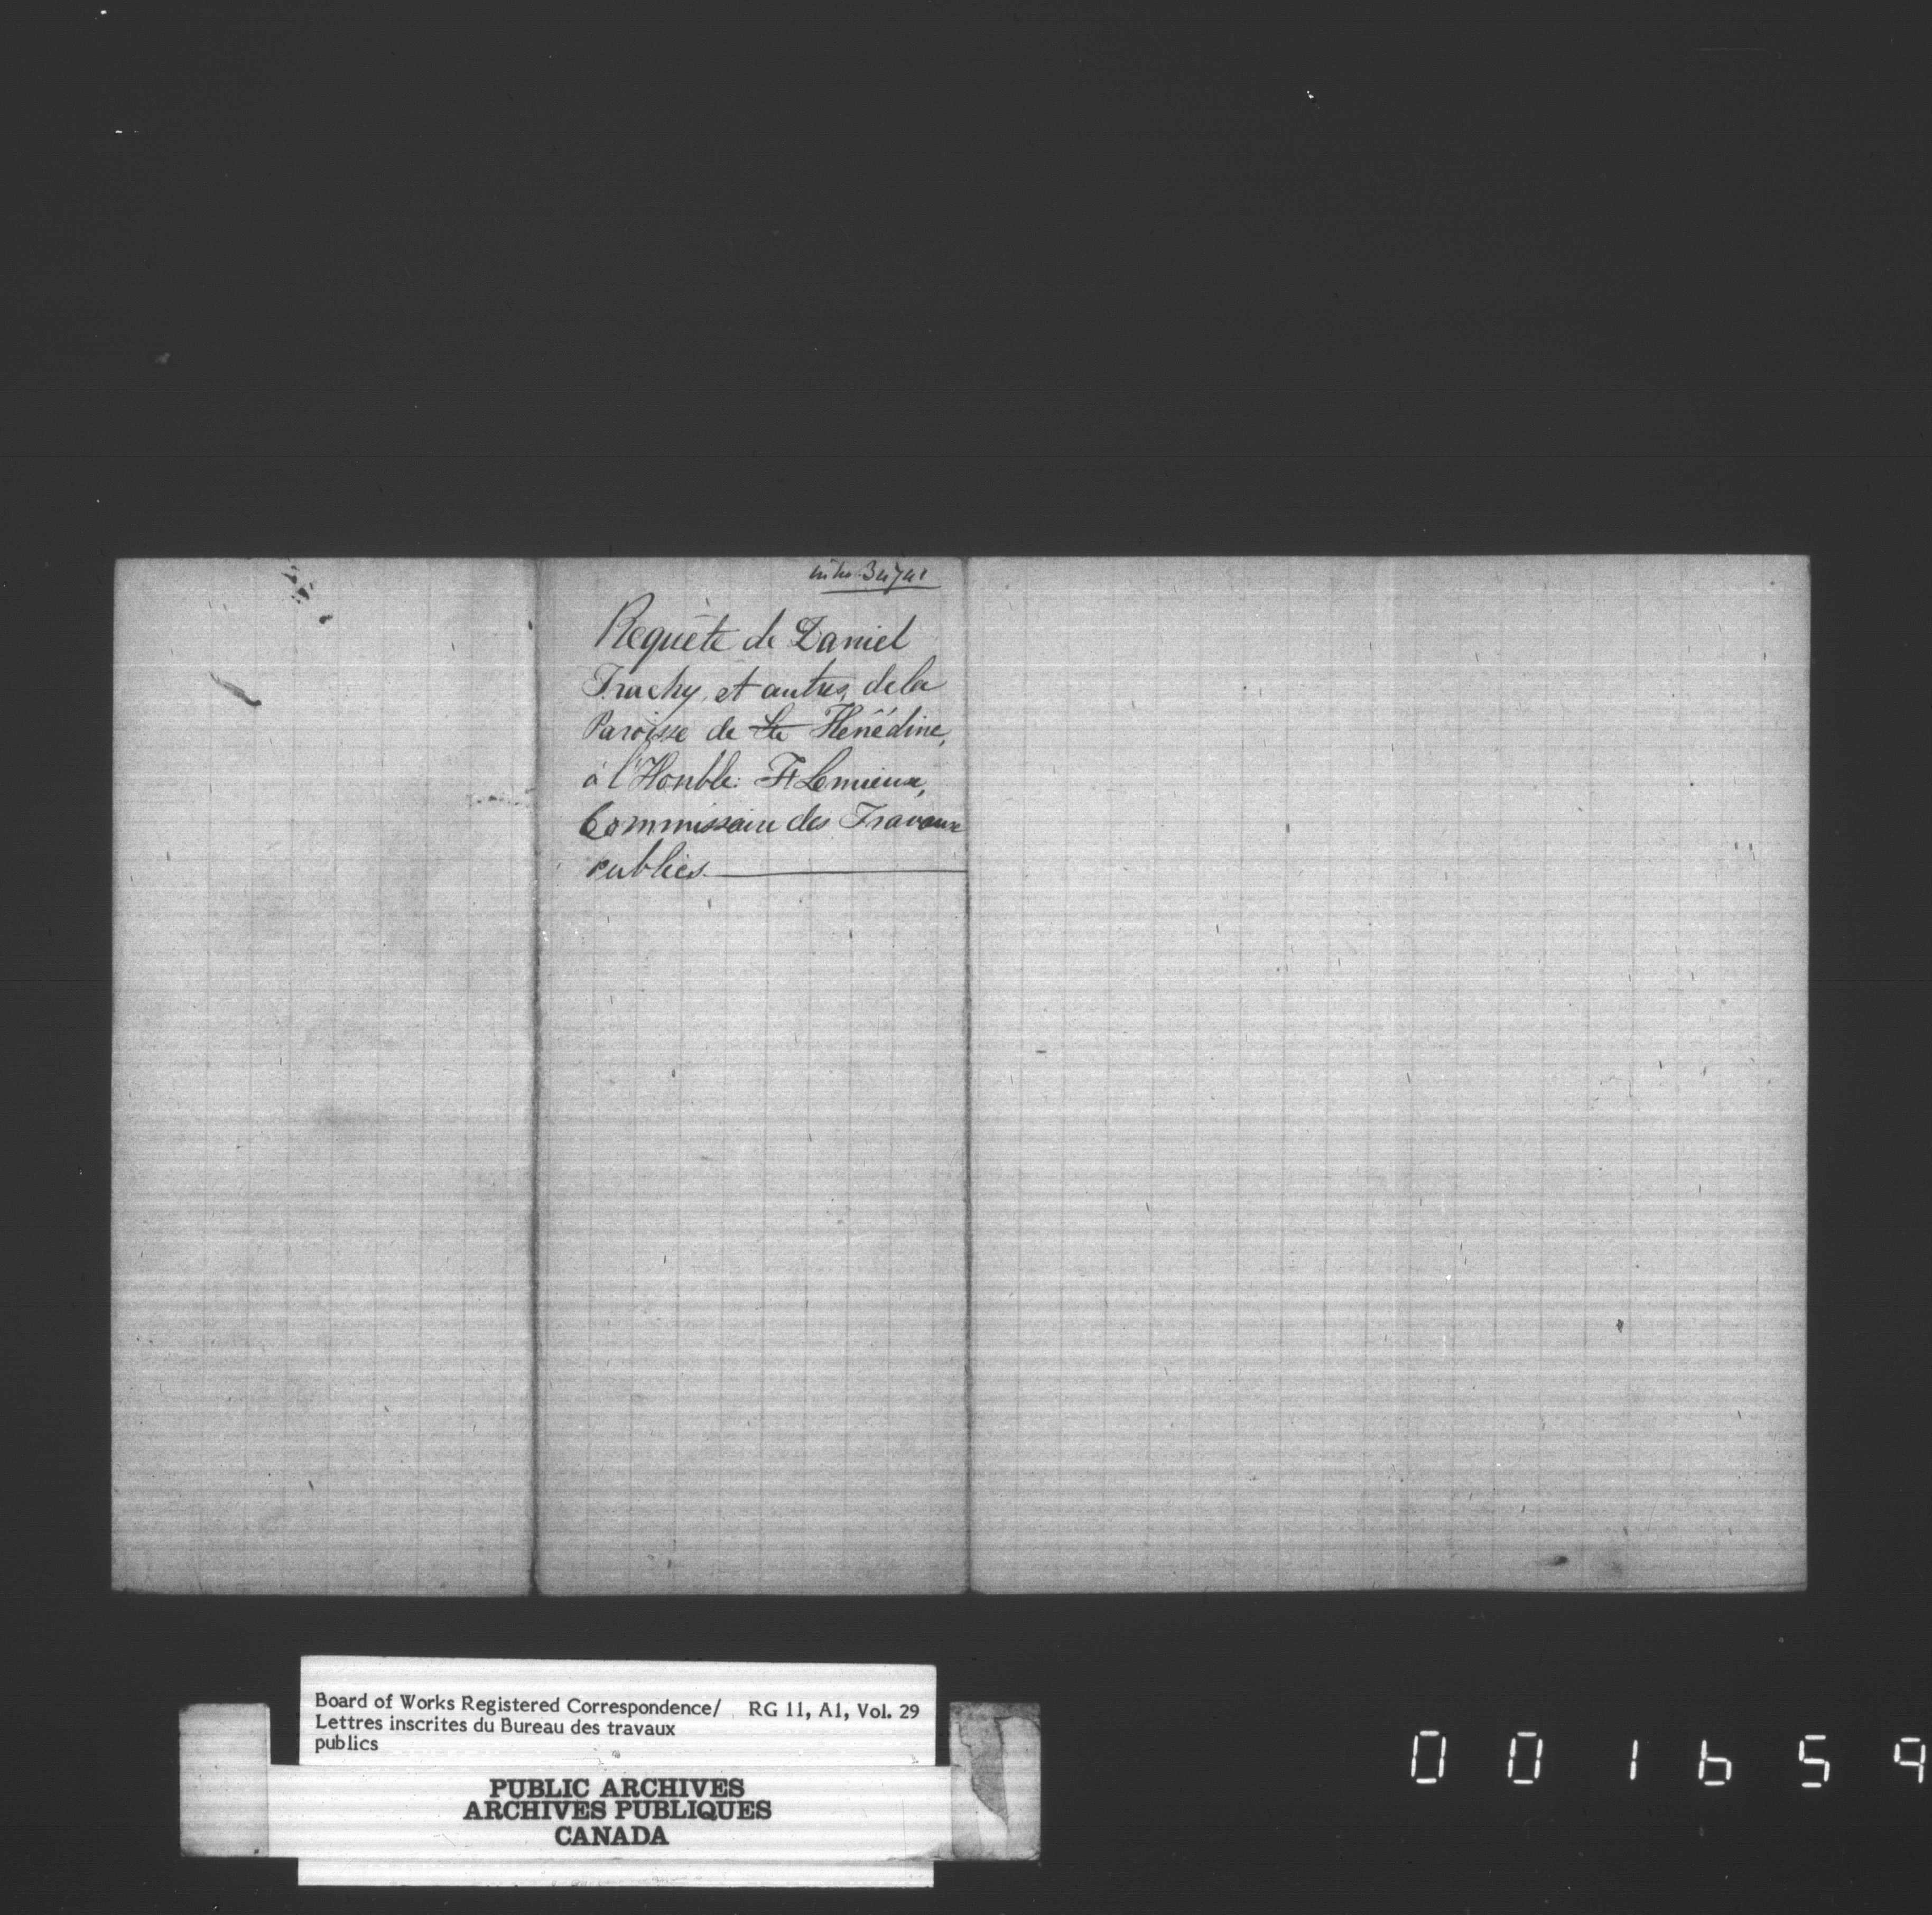 Requête de Daniel
Trachy, et autres, de la
Paroisse de Ste Hénédine,
à l'Honble: Fs Lemieux,
Commissaire des Travaux
publics.
Board of Works Registered Correspondence/ RG 11, A1, Vol. 29
Lettres inscrites du Bureau des travaux
publics
PUBLIC ARCHIVES
ARCHIVES PUBLIQUES
CANADA
001659